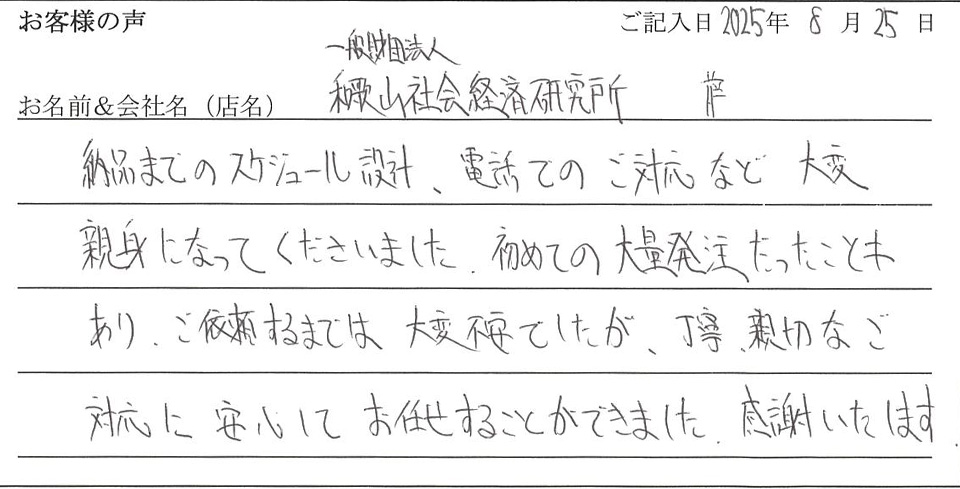 お客様の声 ご記入日 2025年 8 月 25 日
一般財団法人
お名前&会社名（店名） 和歌山社会経済研究所
納品までのスケジュール設計、電話でのご対応など 大変
親身になってくださいました。初めての大量発注だったことも
あり、ご依頼するまでは 大変不安でしたが、丁寧、親切なご
対応に 安心して お任せすることができました。感謝いたします。